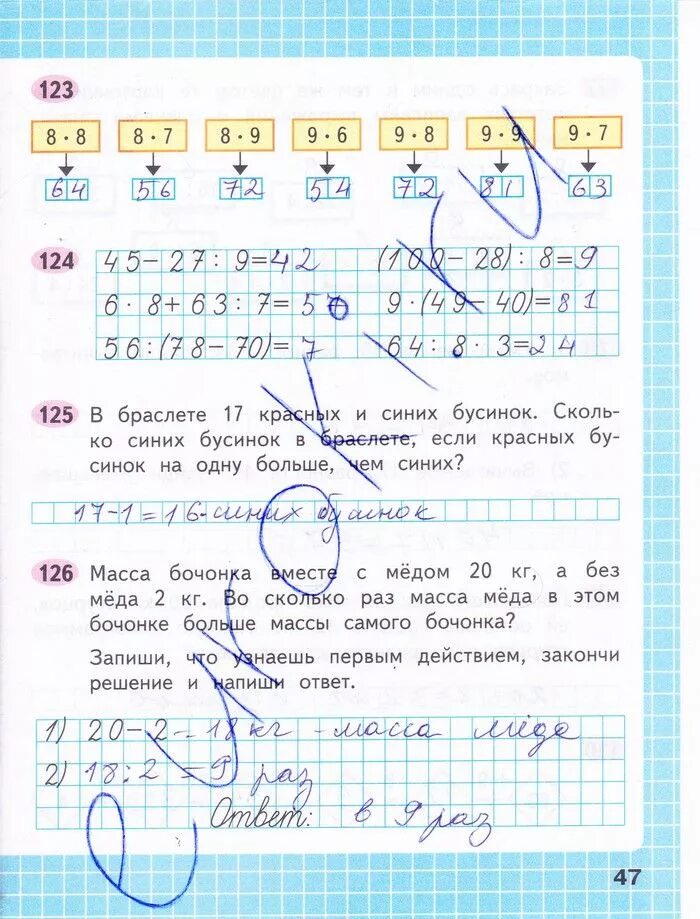 123
8·8 8·7 8·9 9·6 9·8 9·9 9·7
64 56 72 54 72 81 63
124 45-27:9=42 (100-28):8=9
6·8+63:7=57 9·(49-40)=81
56:(78-70)=7 64:8·3=24
125 В браслете 17 красных и синих бусинок. Сколь-
ко синих бусинок в браслете, если красных бу-
синок на одну больше, чем синих?
17-1=16-синих бусинок
126 Масса бочонка вместе с мёдом 20 кг, а без
мёда 2 кг. Во сколько раз масса мёда в этом
бочонке больше массы самого бочонка?
Запиши, что узнаешь первым действием, закончи
решение и напиши ответ.
1) 20-2=18кг -масса мёда
2) 18:2=9 раз
Ответ: в 9 раз
47